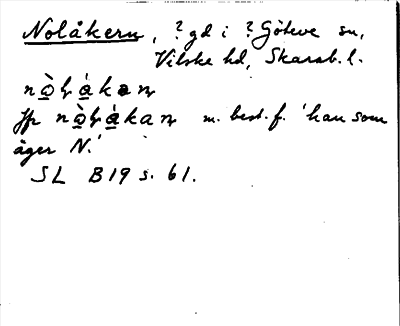 Nolåkern, ? gd i ? Göteve sn,
Vilske hd, Skarab. l.
Jfr m. best. f. 'han som
äger N.'
SL B19 s. 61.